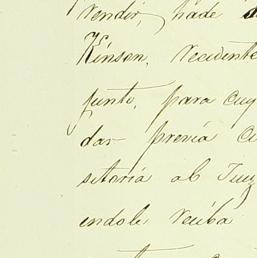 vender, hade
Kinson. Recidente
junto, para cuy
dar previa
sitoria al Juzg
endole reciba